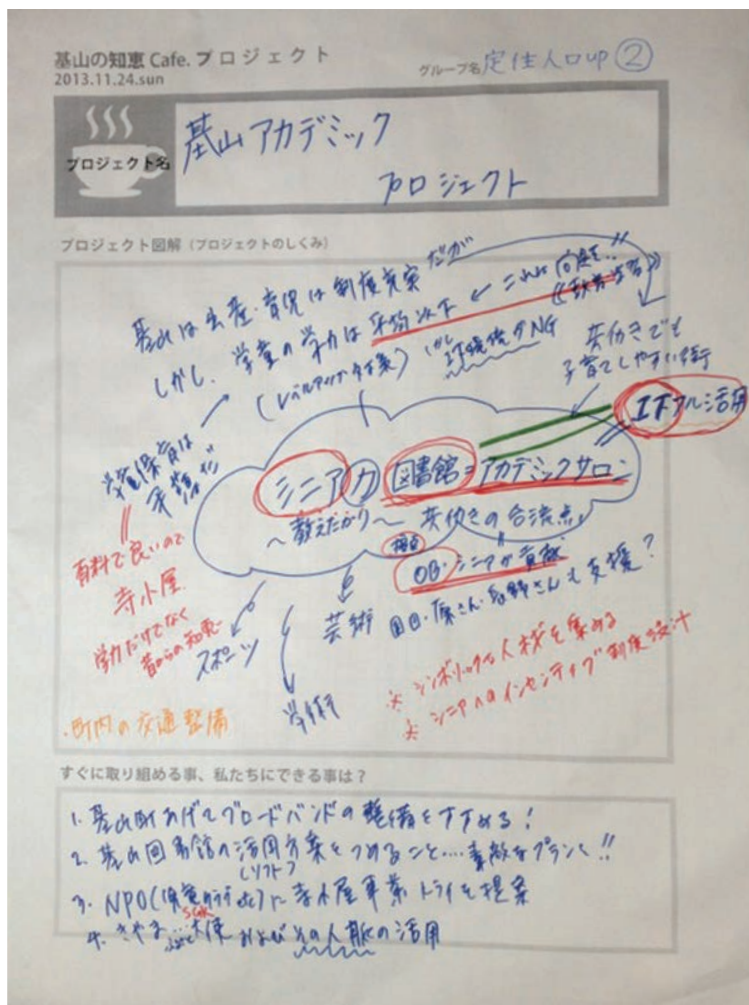 基山の知恵 Cafe. プロジェクト
2013.11.24.sun
グループ名 定住人口up ②
プロジェクト名
基山アカデミック
プロジェクト
プロジェクト図解（プロジェクトのしくみ）
基山は出産・育児は制度充実だが
しかし、学童の学力は平均以下 ← これは問題‥
(レベルアップ対策) しかし環境がNG
共働きでも
子育てしやすい街
IT 活用
学童保育は
手薄だ
シニア力 図書館=アカデミックサロン
～教えたがり～ 共働きの合流点
拠点
OB・シニアが貢献
有料で良いので
寺小屋
学力だけでなく
昔からの知恵
スポーツ
芸術
学術
原さん・ さんも支援？
※ シンボリックな人材を集める
※ シニアへのインセンティブ制度設計
・町内の交通整備
すぐに取り組める事、私たちにできる事は？
1. 基山町あげてブロードバンドの整備をすすめる！
2. 基山図書館の活用方案をつめること‥‥素敵なプランく!!
(ソフト)
3. NPO( etc)に寺小屋事業トライを提案
4. きやま 大使 およびその人脈の活用